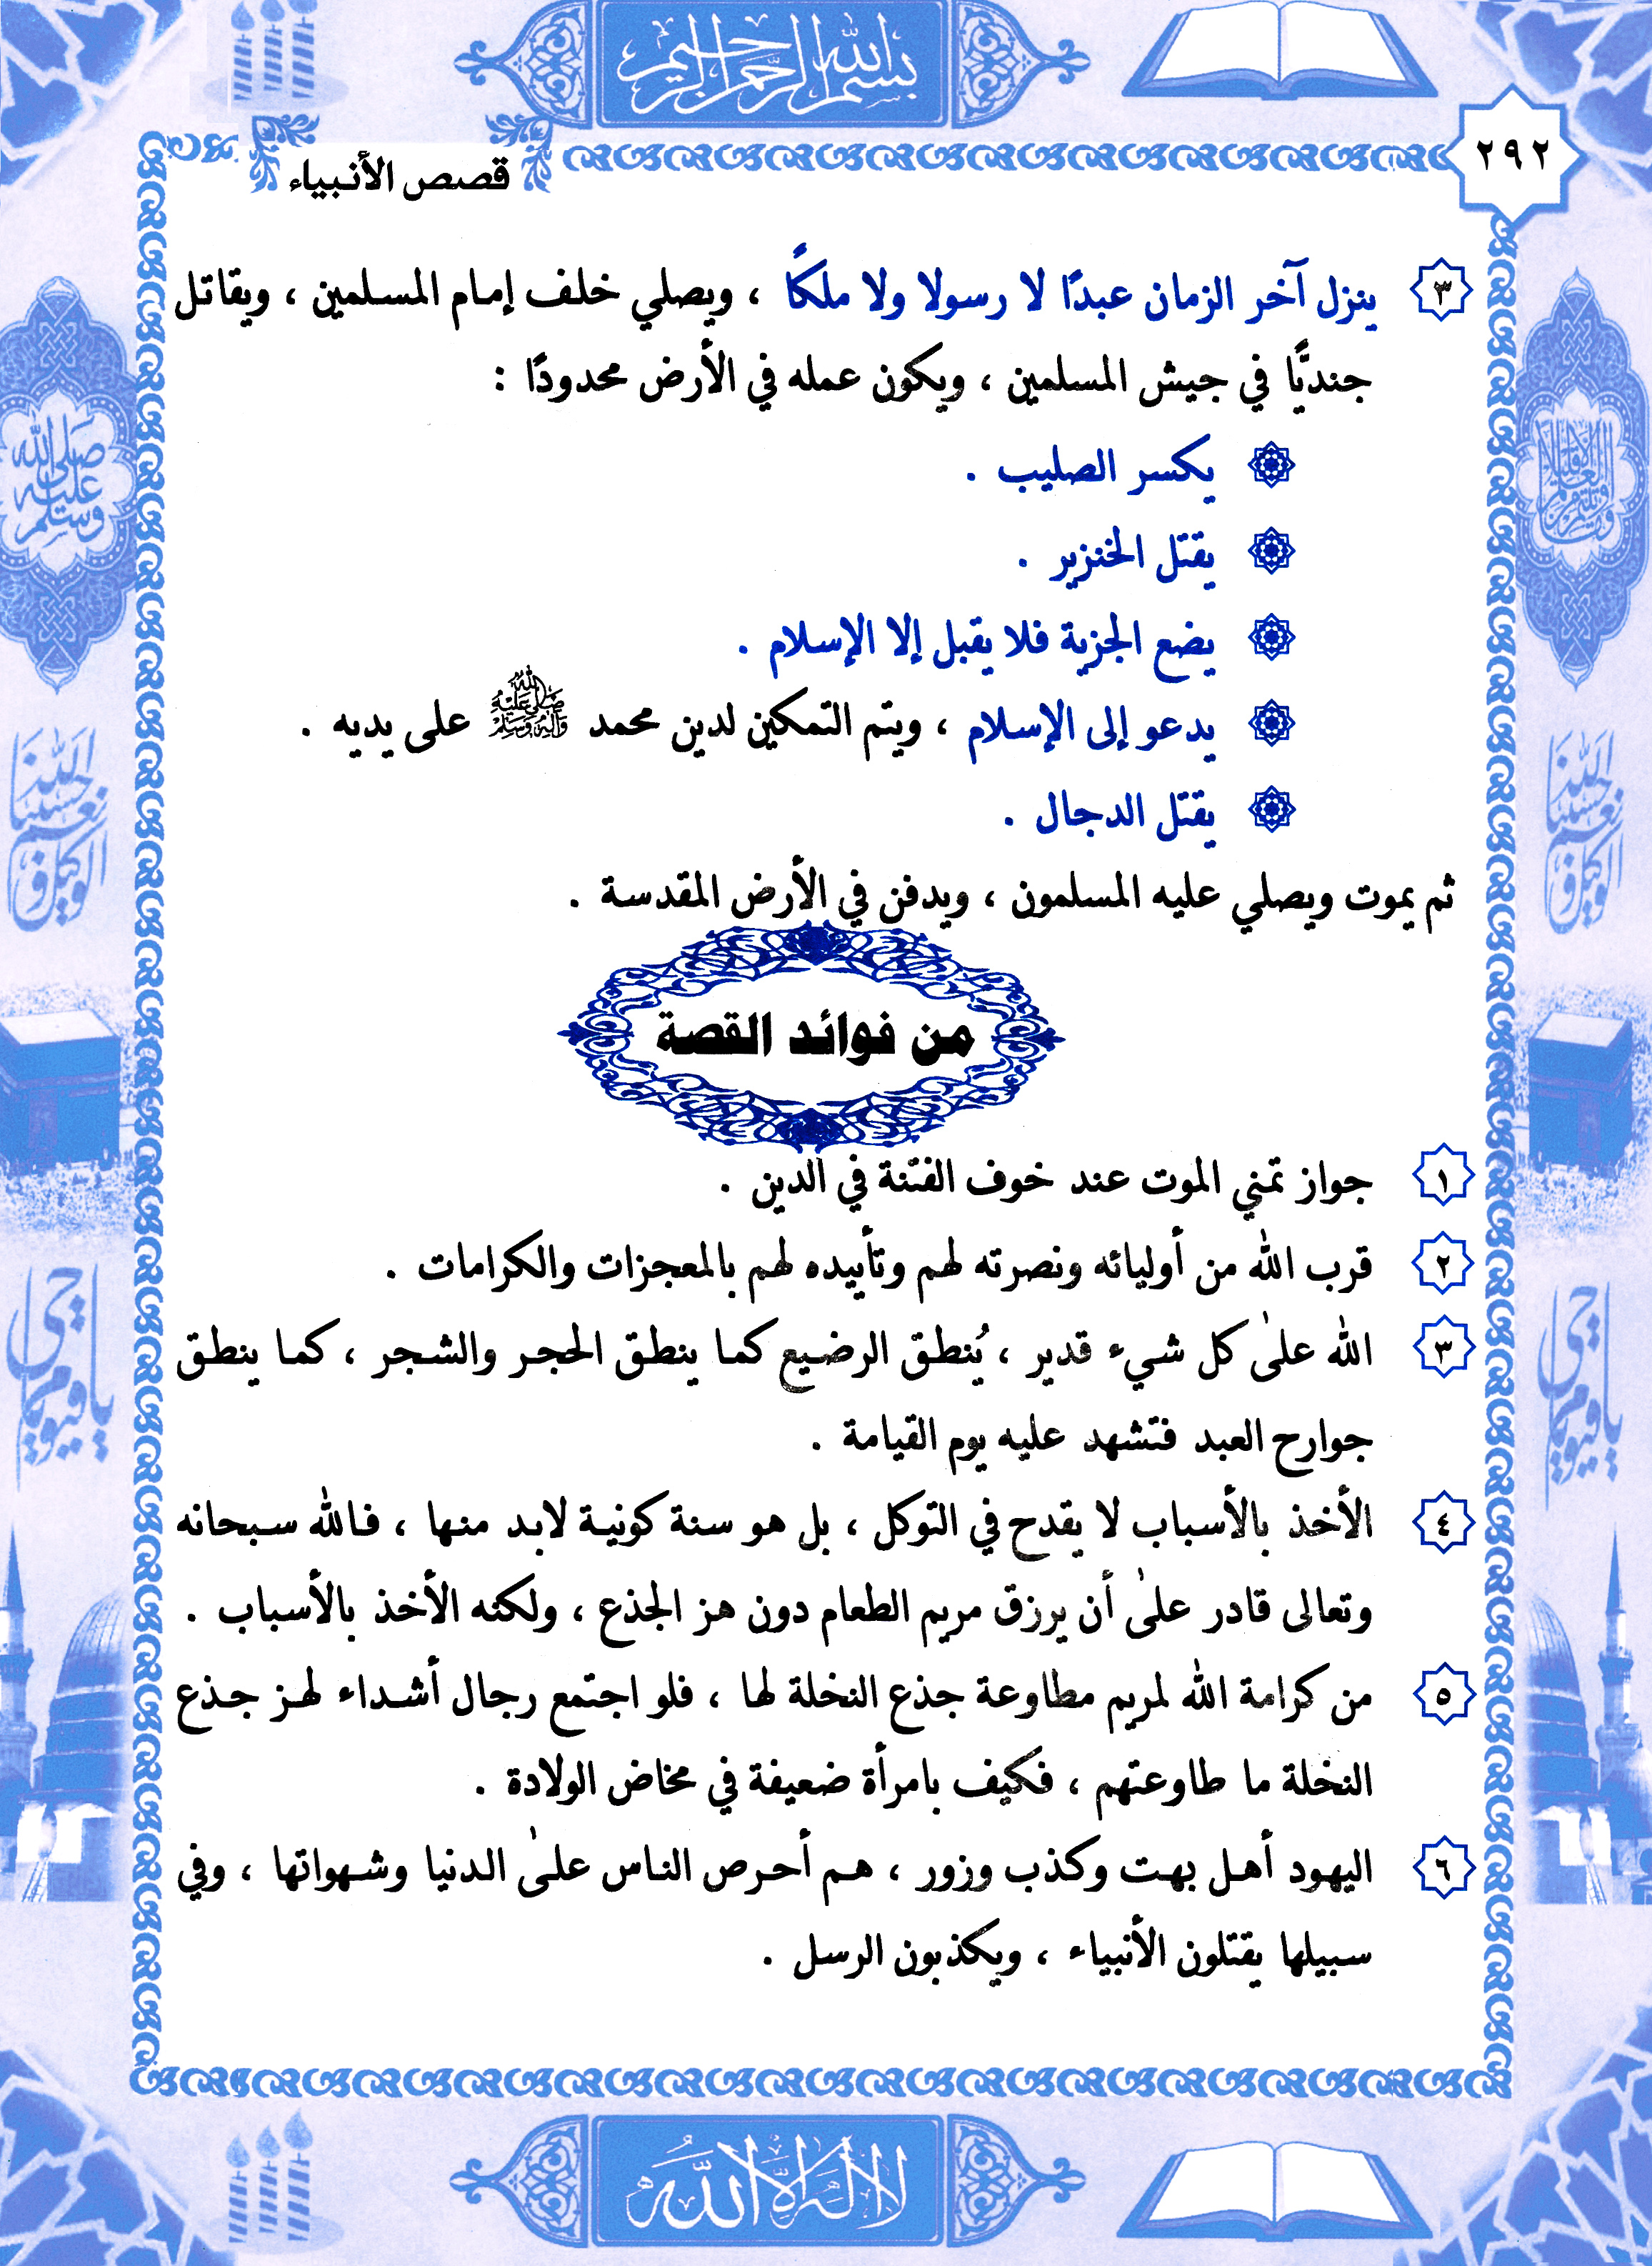 بسم الله الرحمن الرحيم
٢٩٢
قصص الأنبياء
٣ ينزل آخر الزمان عبدًا لا رسولا ولا ملكًا ، ويصلي خلف إمام المسلمين ، ويقاتل
جنديًّا في جيش المسلمين ، ويكون عمله في الأرض محدودًا :
يكسر الصليب .
يقتل الخنزير .
يضع الجزية فلا يقبل إلا الإسلام .
يدعو إلى الإسلام ، ويتم التمكين لدين محمد ﷺ على يديه .
يقتل الدجال .
ثم يموت ويصلي عليه المسلمون ، ويدفن في الأرض المقدسة .
من فوائد القصة
١ جواز تمني الموت عند خوف الفتنة في الدين .
٢ قرب الله من أوليائه ونصرته لهم وتأييده لهم بالمعجزات والكرامات .
٣ الله علىٰ كل شيء قدير ، يُنطق الرضيع كما ينطق الحجر والشجر ، كما ينطق
جوارح العبد فتشهد عليه يوم القيامة .
٤ الأخذ بالأسباب لا يقدح في التوكل ، بل هو سنة كونية لابد منها ، فالله سبحانه
وتعالى قادر علىٰ أن يرزق مريم الطعام دون هز الجذع ، ولكنه الأخذ بالأسباب .
٥ من كرامة الله لمريم مطاوعة جذع النخلة لها ، فلو اجتمع رجال أشداء لهز جذع
النخلة ما طاوعتهم ، فكيف بامرأة ضعيفة في مخاض الولادة .
٦ اليهود أهل بهت وكذب وزور ، هم أحرص الناس علىٰ الدنيا وشهواتها ، وفي
سبيلها يقتلون الأنبياء ، ويكذبون الرسل .
صلى الله عليه وسلم
حسبنا الله ونعم الوكيل
حسبنا الله ونعم الوكيل
يا حي يا قيوم
يا حي يا قيوم
لا إله إلا الله